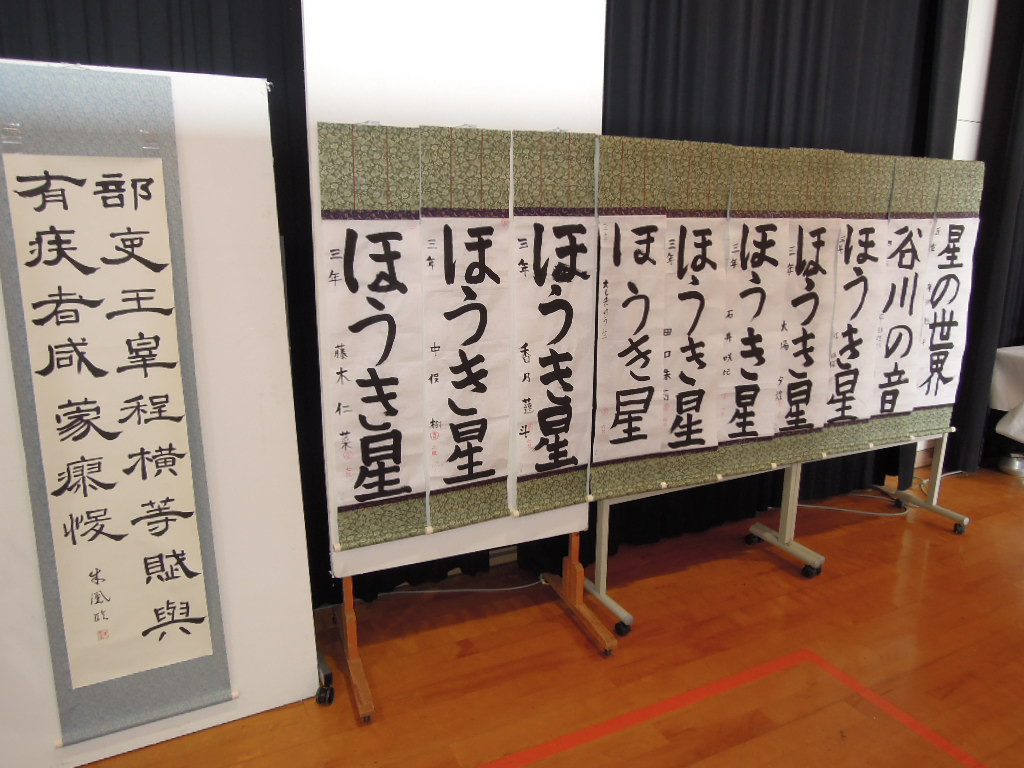 部吏王皐程橫等賦與
有疾者咸蒙瘳悛
ほうき星
三年
藤木仁菜
ほうき星
三年
ほうき星
三年
香月蓮斗
ほうき星
ほうき星
三年
田口
ほうき星
三年
石井咲
ほうき星
三年
大場
ほうき星
谷川の音
星の世界